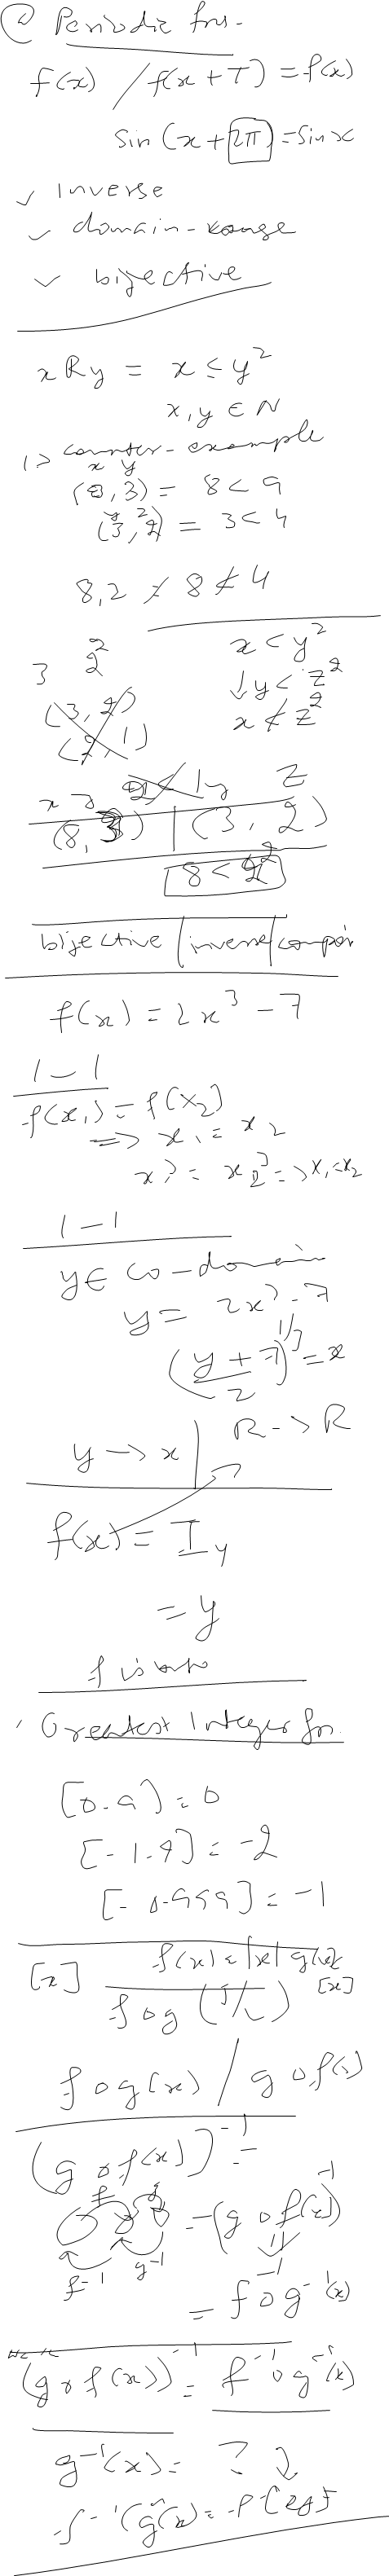 @ Periodic fns.
f(x) / f(x+T) = f(x)
sin (x + 2π) = sin x
✓ Inverse
✓ domain-range
✓ bijective
x R y = x ≤ y²
x, y ∈ N
1> counter-example
x y
(8, 3) = 8 < 9
(3, 2) = 3 < 4
8, 2 8 ≮ 4
3 2²
x < y²
↓ y < z²
x ≮ z²
(3, 2)
(2, 1)
(8, 3) | (3, 2)
8 < 2²
bijective / inverse /
f(x) = 2x³ - 7
1-1
f(x₁) = f(x₂)
=> x₁ = x₂
x₁³ = x₂³ => x₁ = x₂
1-1
y ∈ co-domain
y = 2x³ - 7
((y + 7)/2)^1/3 = x
y -> x | R -> R
f(x) = I_y
= y
f is onto
Greatest Integer fn.
[0.9] = 0
[-1.9] = -2
[-0.999] = -1
[x] f(x) = |x| g(x)
[x]
fog (5/2)
fog(x) / gof(x)
(gof(x))⁻¹ =
f g
f⁻¹ g⁻¹
= (gof(x))⁻¹
= f⁻¹og⁻¹(x)
(gof(x))⁻¹ = f⁻¹og⁻¹(x)
g⁻¹(x) = ?